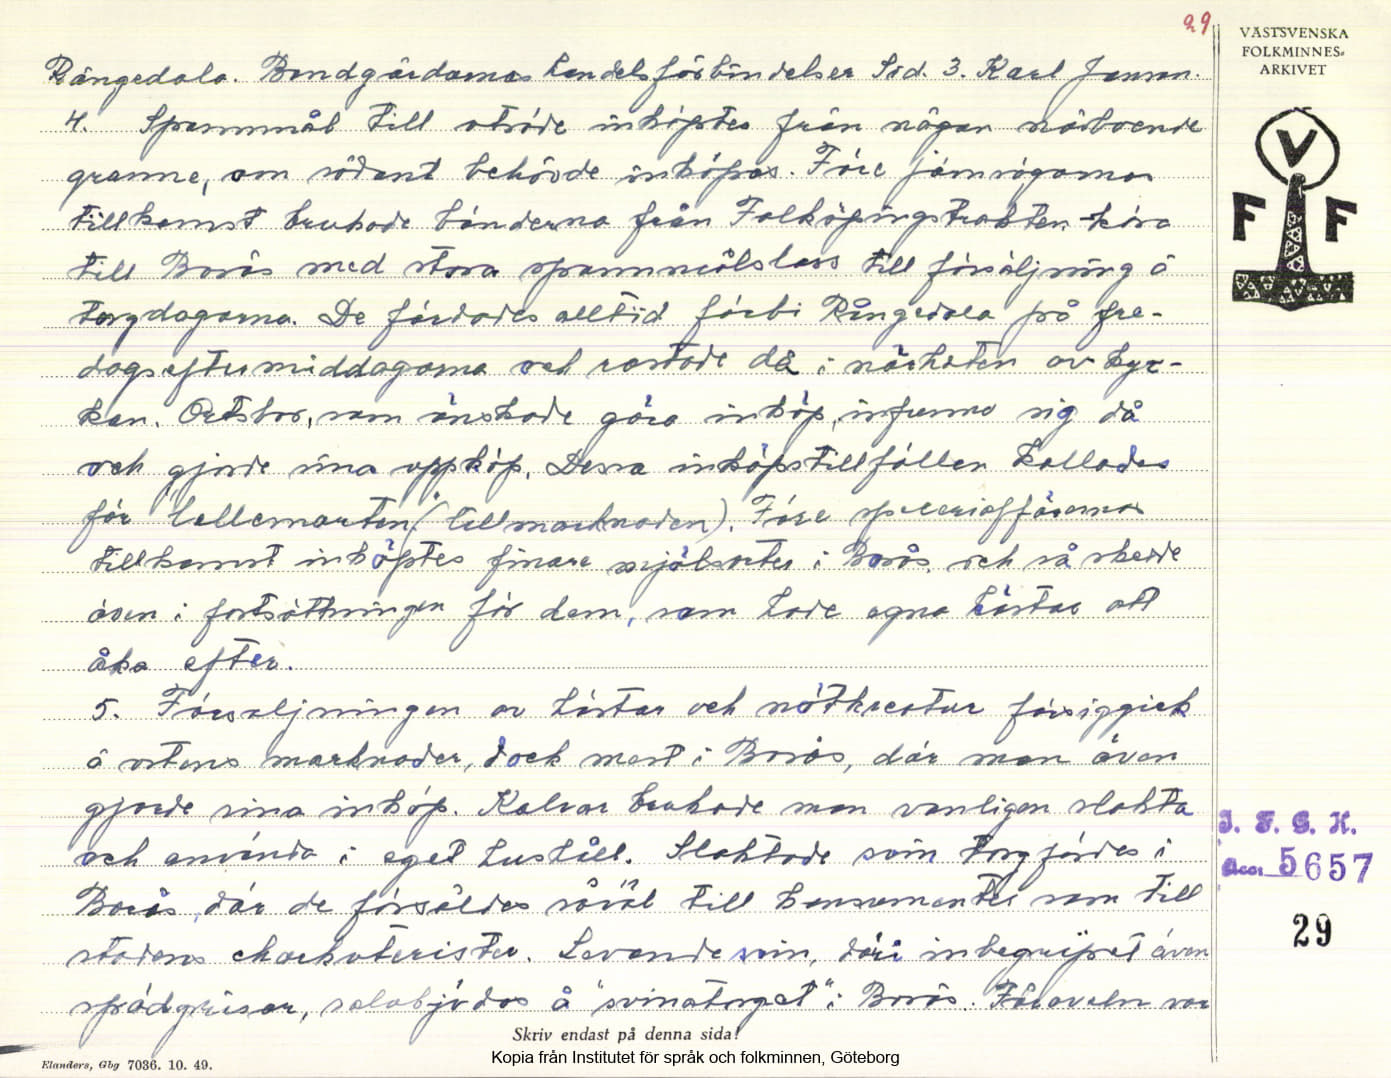 29
VÄSTSVENSKA
FOLKMINNES-
ARKIVET
V
F F
Rångedala. Bondgårdarnas handelsförbindelser Sid. 3. Karl Jonson.
4. Spannmål till utsäde inköptes från någon närboende
granne, om sådant behövde inköpas. Före järnvägarnas
tillkomst brukade bönderna från Falköpingstrakten köra
till Borås med stora spannmålslass till försäljning å
torgdagarna. De färdades alltid förbi Rångedala på fre-
dagseftermiddagarna och rastade då i närheten av kyr-
kan. Ortsbor, som önskade göra inköp, infunno sig då
och gjorde sina uppköp. Dessa inköpstillfällen kallades
för "lellemarten" (lillmarknaden). Före speceriaffärernas
tillkomst inköptes finare mjölsorter i Borås och så skedde
även i fortsättningen för dem, som hade egna hästar att
åka efter.
5. Försäljningen av hästar och nötkreatur försiggick
å ortens marknader, dock mest i Borås, där man även
gjorde sina inköp. Kalvar brukade man vanligen slakta
och använda i eget hushåll. Slaktade svin torgfördes i
Borås, där de försåldes såväl till konsumenter som till
stadens charkuterister. Levande svin, däri inbegripet även
spädgrisar, salubjödos å "svinatorget" i Borås. Fåraveln var
J. F. G. H.
Acc. 5657
29
Skriv endast på denna sida!
Kopia från Institutet för språk och folkminnen, Göteborg
Elanders, Gbg 7036. 10. 49.